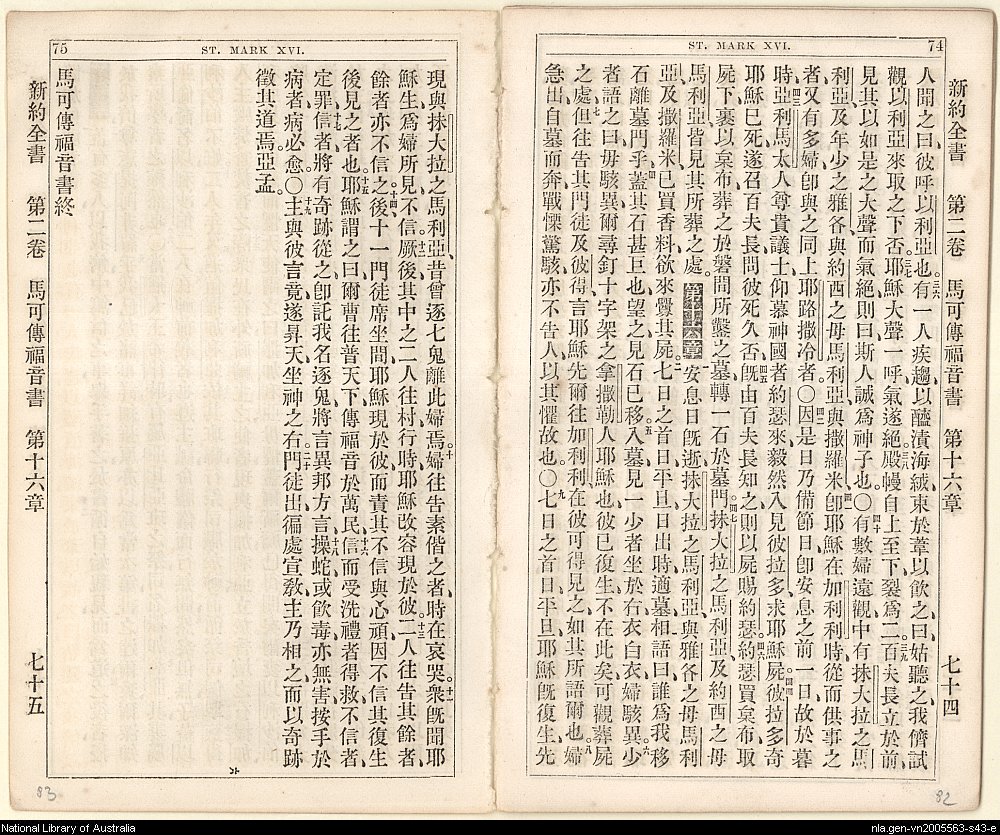 74
ST. MARK XVI.
新約全書 第二卷 馬可傳福音書 第十六章 七十四
人聞之曰彼呼以利亞也三六有一人疾趨以醯漬海絨束於葦以飮之曰姑聽之我儕試
觀以利亞來取之下否三七耶穌大聲一呼氣遂絕三八殿幔自上至下裂爲二三九百夫長立於前
見其以如是之大聲而氣絕則曰斯人誠爲神子也〇四十有數婦遠觀中有抹大拉之馬
利亞及年少之雅各與約西之母馬利亞與撒羅米四一卽耶穌在加利利時從而供事之
者又有多婦卽與之同上耶路撒冷者〇四二因是日乃備節日卽安息之前一日故於暮
時四三亞利馬太人尊貴議士仰慕神國者約瑟來毅然入見彼拉多求耶穌屍四四彼拉多奇
耶穌已死遂召百夫長問彼死久否四五旣由百夫長知之則以屍賜約瑟四六約瑟買枲布取
屍下裹以枲布葬之於磐間所鑿之墓轉一石於墓門四七抹大拉之馬利亞及約西之母
馬利亞皆見其所葬之處。第十六章一安息日旣逝抹大拉之馬利亞與雅各之母馬利
亞及撒羅米已買香料欲來釁其屍二七日之首日平旦日出時適墓三相語曰誰爲我移
石離墓門乎四蓋其石甚巨也望之見石已移五入墓見一少者坐於右衣白衣婦駭異六少
者語之曰毋駭異爾尋釘十字架之拿撒勒人耶穌也彼已復生不在此矣可觀葬屍
之處七但往告其門徒及彼得言耶穌先爾往加利利在彼可得見之如其所語爾也八婦
急出自墓而奔戰慄驚駭亦不吿人以其懼故也〇九七日之首日平旦耶穌旣復生先
75
ST. MARK XVI.
現與抹大拉之馬利亞昔曾逐七鬼離此婦焉十婦往吿素偕之者時在哀哭十一衆旣聞耶
穌生爲婦所見不信十二厥後其中之二人往村行時耶穌改容現於彼十三二人往吿其餘者
餘者亦不信之十四後十一門徒席坐間耶穌現於彼而責其不信與心頑因不信其復生
後見之者也十五耶穌謂之曰爾曹往普天下傳福音於萬民十六信而受洗禮者得救不信者
定罪十七信者將有奇跡從之卽託我名逐鬼將言異邦方言十八操蛇或飮毒亦無害按手於
病者病必愈〇十九主與彼言竟遂昇天坐神之右二十門徒出徧處宣敎主乃相之而以奇跡
徵其道焉亞孟
馬可傳福音書終
新約全書 第二卷 馬可傳福音書 第十六章 七十五
83
82
National Library of Australia
nla.gen-vn2005563-s43-e